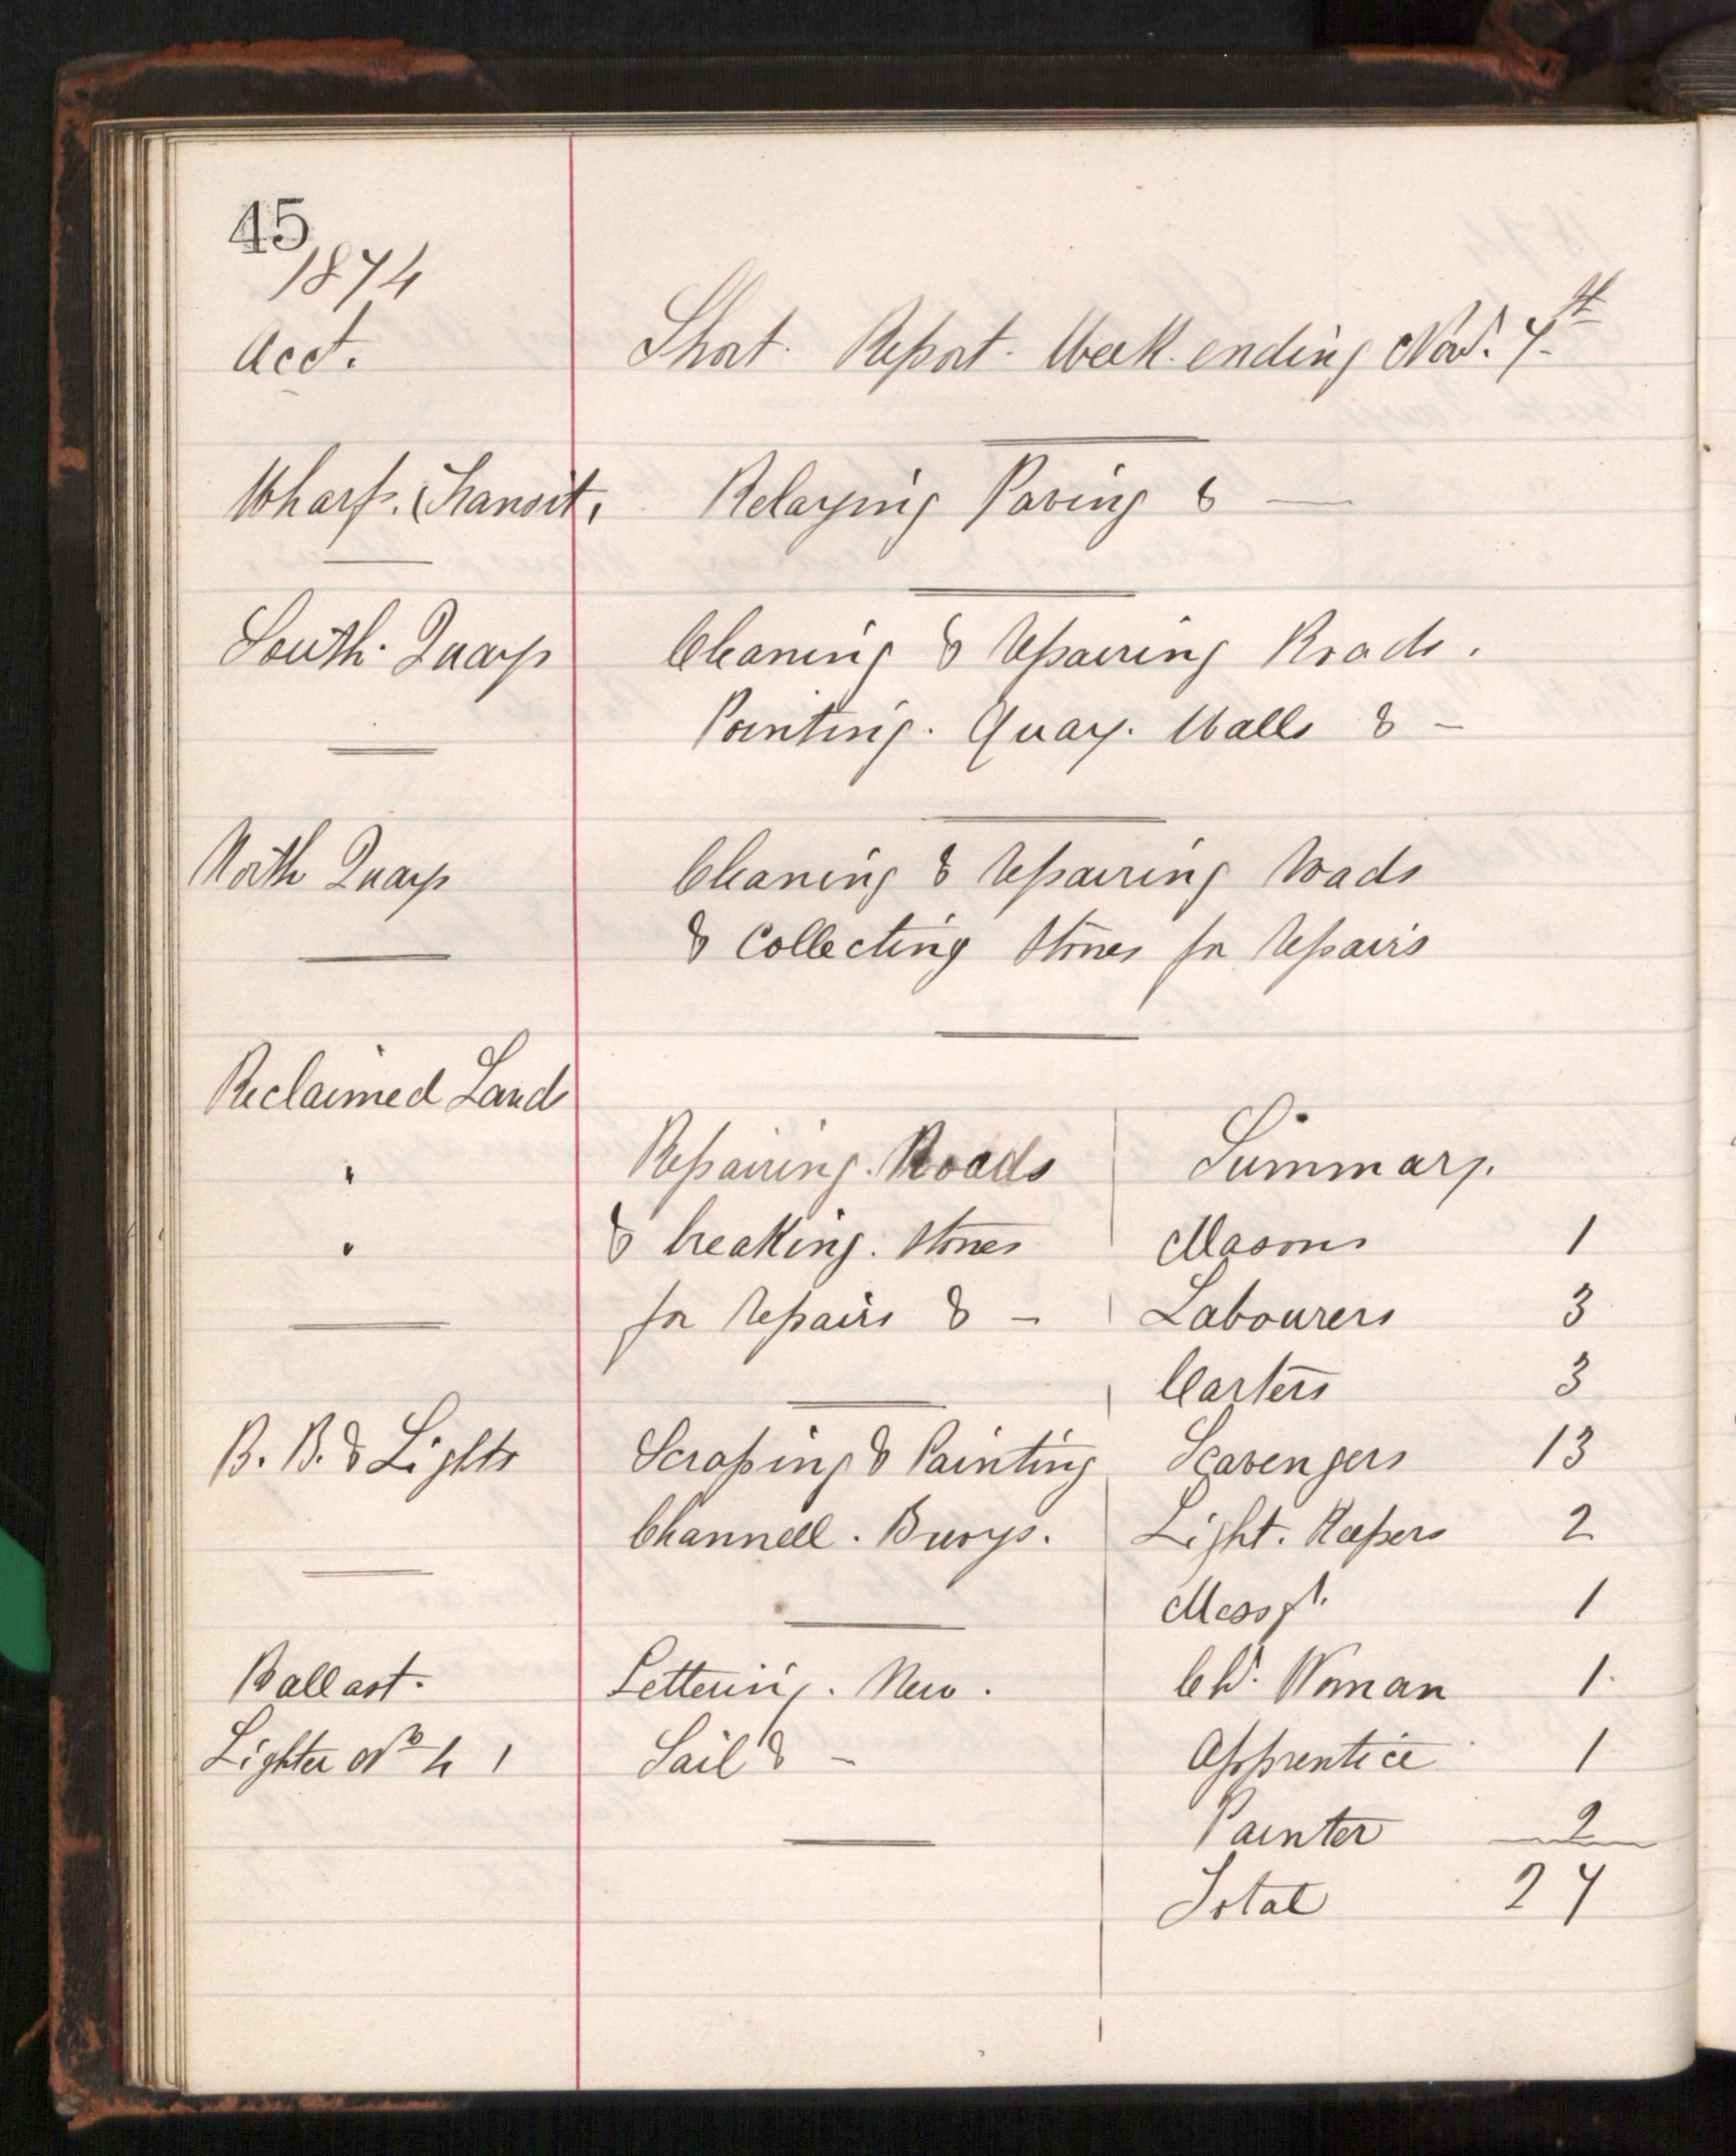 45
1874
Acct. Short. Report. Week. ending Novr. 7th
Wharf. Transit. Relaying Paving & —
South. Quays Cleaning & repairing Roads.
Pointing. Quay. Walls & —
North Quays Cleaning & repairing roads
& Collecting stones for repairs
Reclaimed Land
" Repairing. Roads Summary.
" & breaking. stones Masons 1
for repairs & — Labourers 3
Carters 3
B. B. & Lights Scraping & Painting Scavengers 13
Channell. Buoys. Light. Keepers 2
Messgr. 1
Ballast. Lettering. New. Chr. Woman 1
Lighter No 4 1 Sail & — Apprentice 1
Painter 2
Total 27